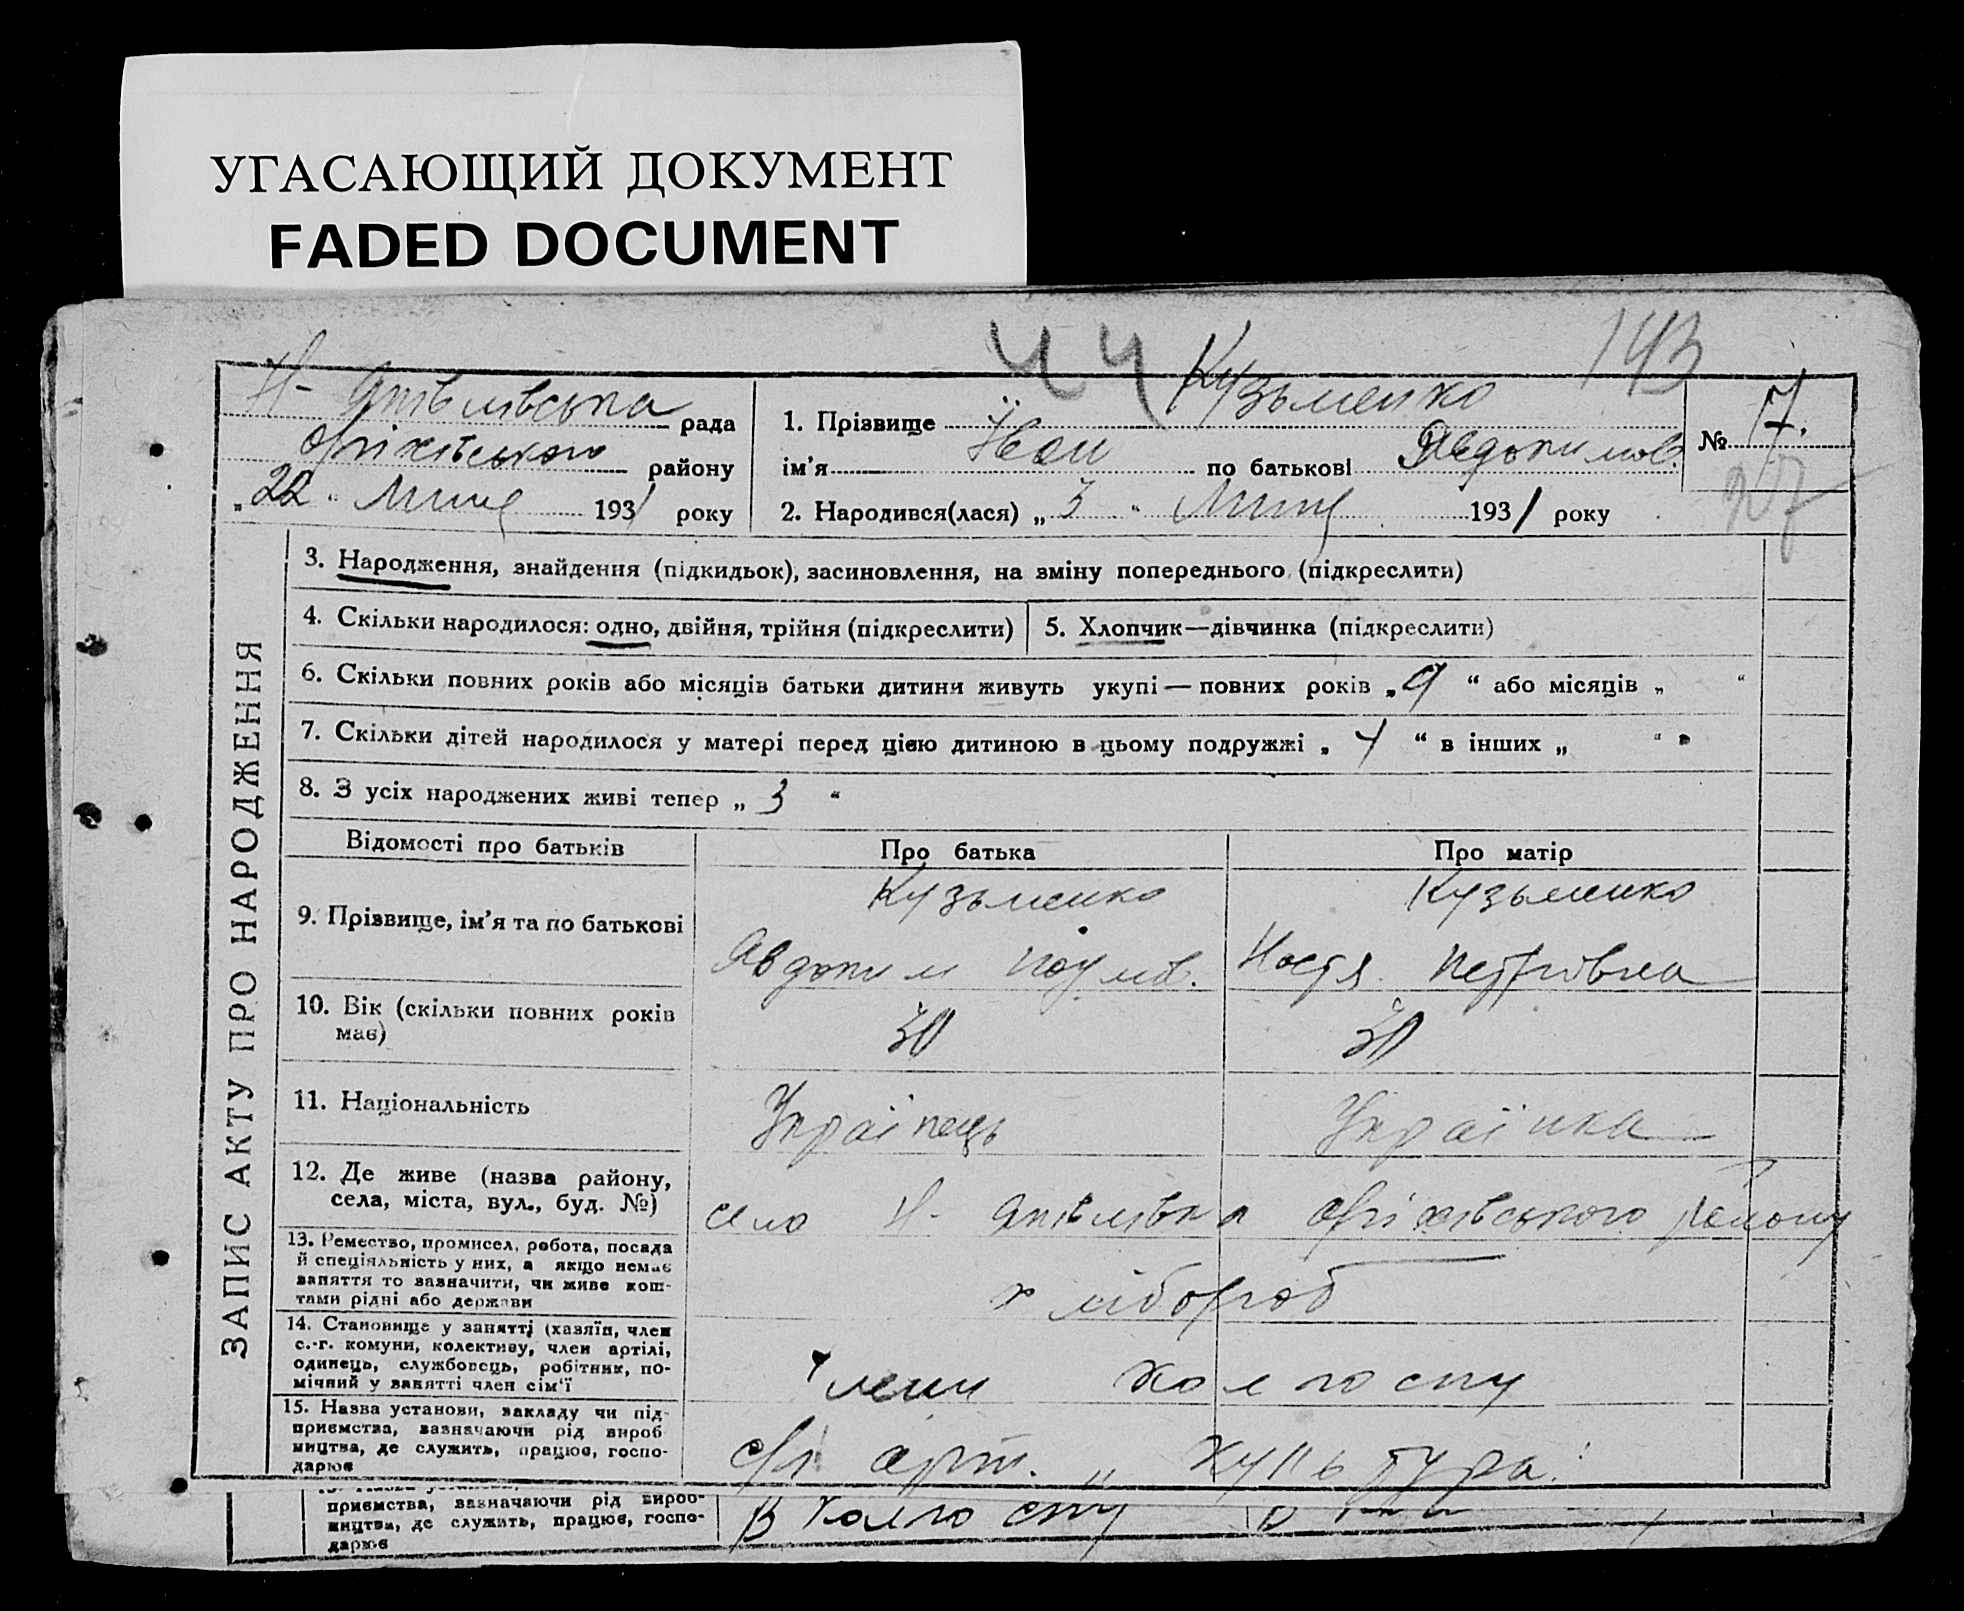 УГАСАЮЩИЙ ДОКУМЕНТ
FADED DOCUMENT
143
Н- Яківлівська рада
Оріхівського району
„22“ Липц 1931 року
1. Прізвище Кузьменко
ім'я Іван по батькові Явдокимов.
2. Народився(лася) „3“ Липц 1931 року
№ 7.
ЗАПИС АКТУ ПРО НАРОДЖЕННЯ
3. Народження, знайдення (підкидьок), засиновлення, на зміну попереднього (підкреслити)
4. Скільки народилося: одно, двійня, трійня (підкреслити)
5. Хлопчик—дівчинка (підкреслити)
6. Скільки повних років або місяців батьки дитини живуть укупі — повних років „9“ або місяців „ “
7. Скільки дітей народилося у матері перед цією дитиною в цьому подружжі „4“ в інших „ “
8. З усіх народжених живі тепер „3“
Відомості про батьків
Про батька
Про матір
9. Прізвище, ім'я та по батькові
Кузьменко
Явдоким Наумів.
Кузьменко
Настя Петрівна
10. Вік (скільки повних років
має)
30
30
11. Національність
Українець
Українка
12. Де живе (назва району,
села, міста, вул., буд. №)
село Н- Яківлівка Оріхівського району
13. Ремество, промисел, робота, посада
й спеціяльність у них, а якщо немає
заняття то зазначити, чи живе кош-
тами рідні або держави
хлібороб
14. Становище у занятті (хазяїн, член
с.-г. комуни, колективу, член артілі,
одинець, службовець, робітник, по-
мічний у занятті член сім'ї
члени колгоспу
15. Назва установи, закладу чи під-
приємства, зазначаючи рід вироб
ництва, де служить, працює, госпо-
дарює
с/г арт. „Культура“
приємства, зазначаючи рід вироб-
ництва, де служить, працює, госпо-
дарює
В колгоспу